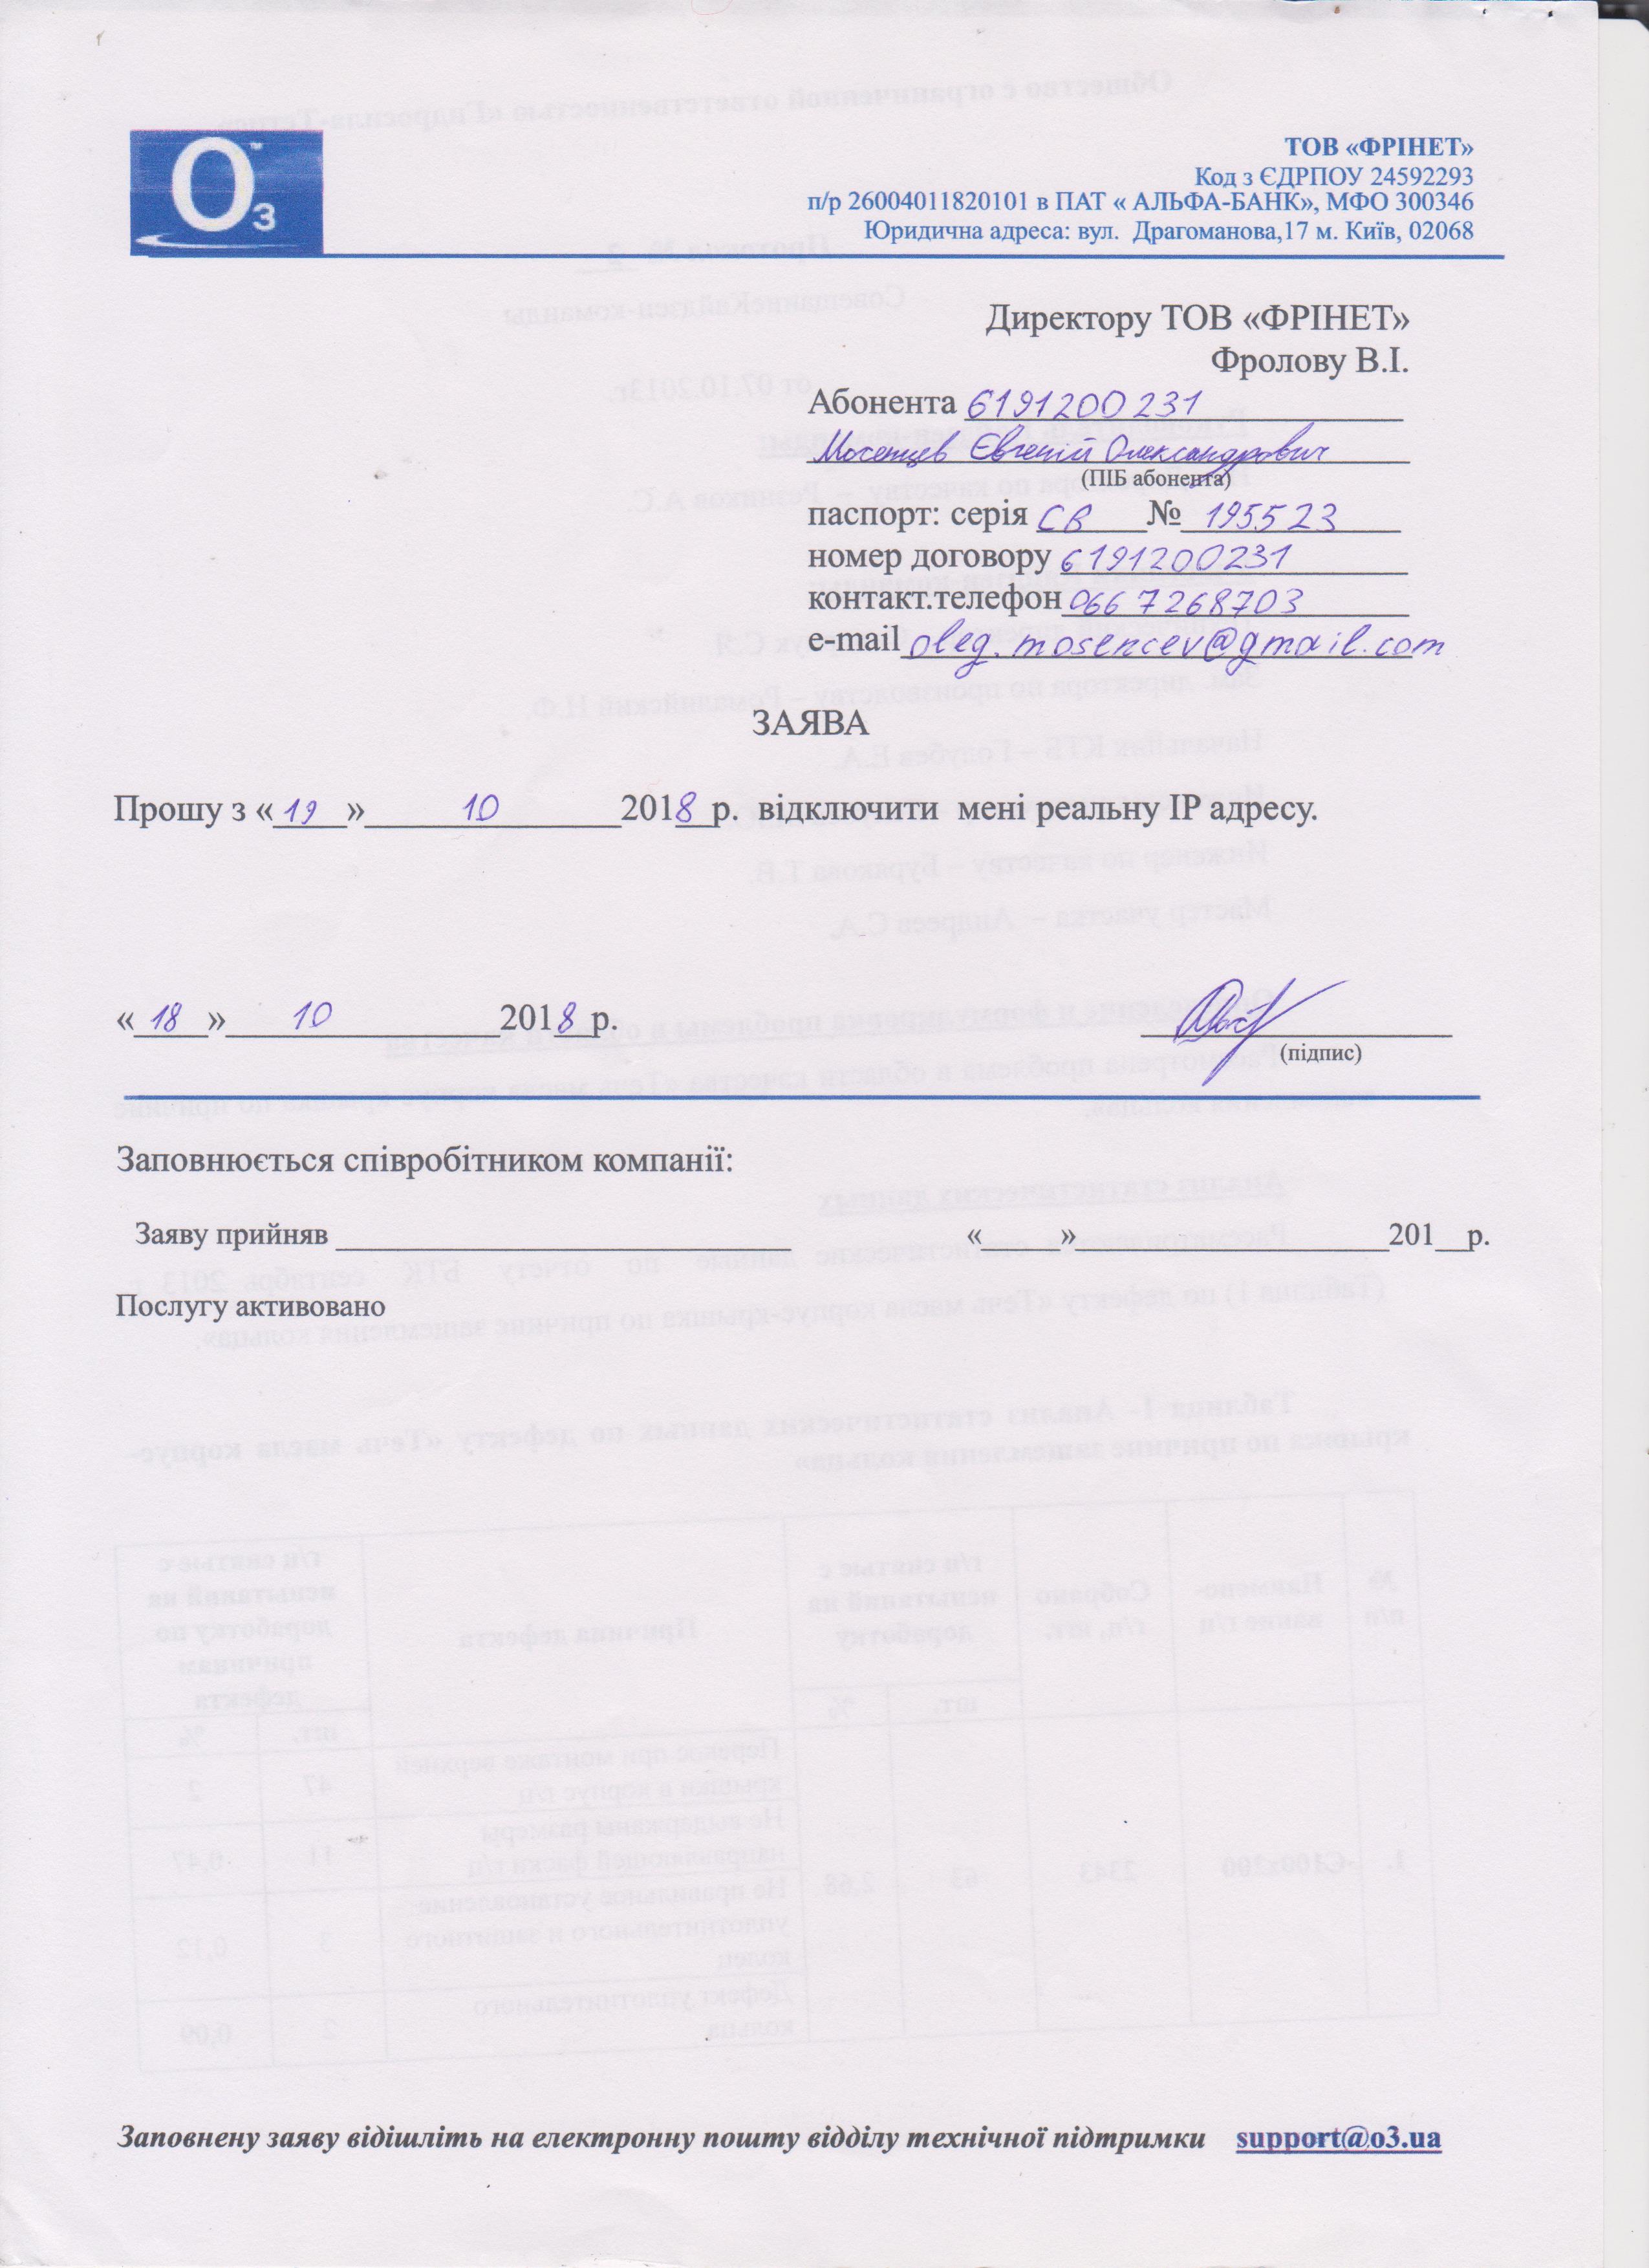 O3™
ТОВ «ФРІНЕТ»
Код з ЄДРПОУ 24592293
п/р 26004011820101 в ПАТ « АЛЬФА-БАНК», МФО 300346
Юридична адреса: вул. Драгоманова,17 м. Київ, 02068
Директору ТОВ «ФРІНЕТ»
Фролову В.І.
Абонента 6191200231
Мосенцев Євгеній Олександрович
(ПІБ абонента)
паспорт: серія СВ № 195523
номер договору 6191200231
контакт.телефон 066 7268703
e-mail oleg.mosencev@gmail.com
ЗАЯВА
Прошу з «19» 10 2018 р. відключити мені реальну IP адресу.
«18» 10 2018 р.
(підпис)
Заповнюється співробітником компанії:
Заяву прийняв ____ «____» ____ 201__р.
Послугу активовано
Заповнену заяву відішліть на електронну пошту відділу технічної підтримки support@o3.ua